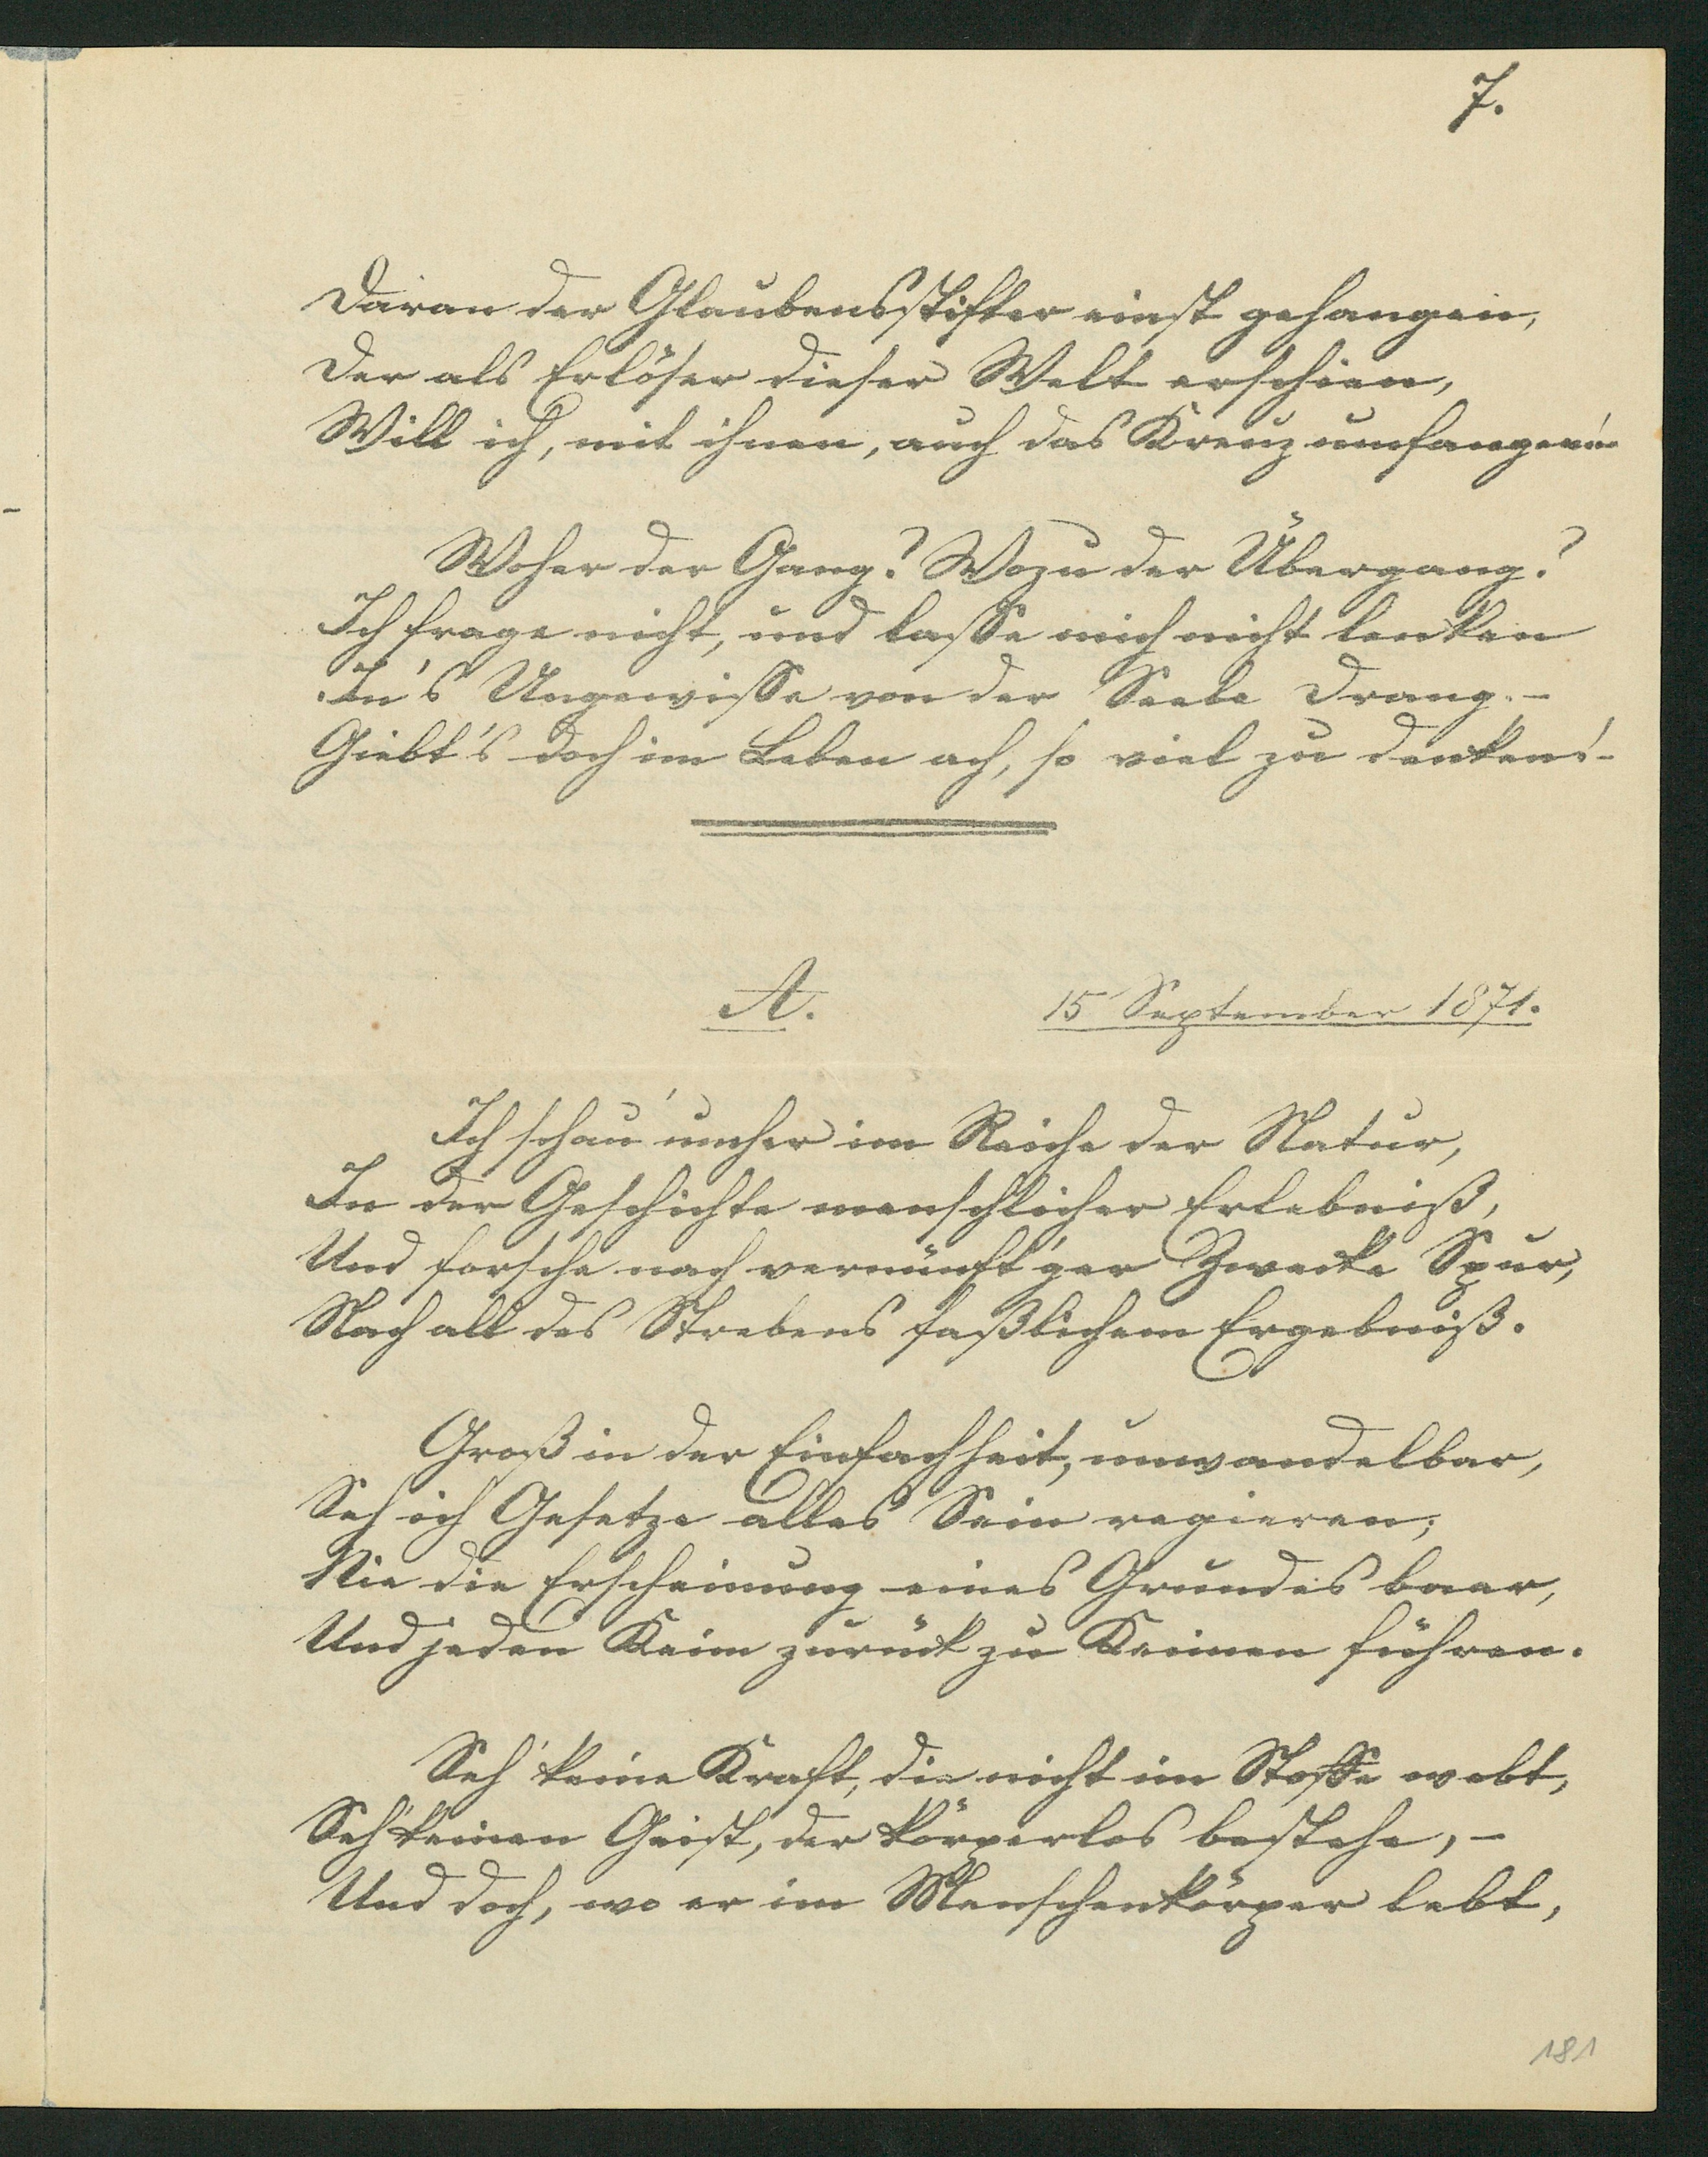 7.
Daran der Glaubensstifter einst gehangen,
Der als Erlöser dieser Welt erschien,
Will ich, mit ihnen, auch das Kreuz umfangen! –
Woher der Gang? Wozu der Übergang?
Ich frage nicht, und lasse mich nicht lenken
In's Ungewisse von der Seele Drang. –
Giebt's doch im Leben ach, so viel zu denken! –
A. 15 September 1871.
Ich schau' umher im Reiche der Natur,
In der Geschichte menschlicher Erlebniß,
Und forsche nach vernünft'ger Zwecke Spur,
Nach all des Strebens faßlichem Ergebniß.
Groß in der Einfachheit, unwandelbar,
Seh ich Gesetze alles Sein regieren;
Nie die Erscheinung eines Grundes baar,
Und jeden Keim zurück zu Keimen führen.
Seh' keine Kraft, die nicht im Stoffe webt,
Seh' keinen Geist, der körperlos bestehe, –
Und doch, wo er im Menschenkörper lebt,
181